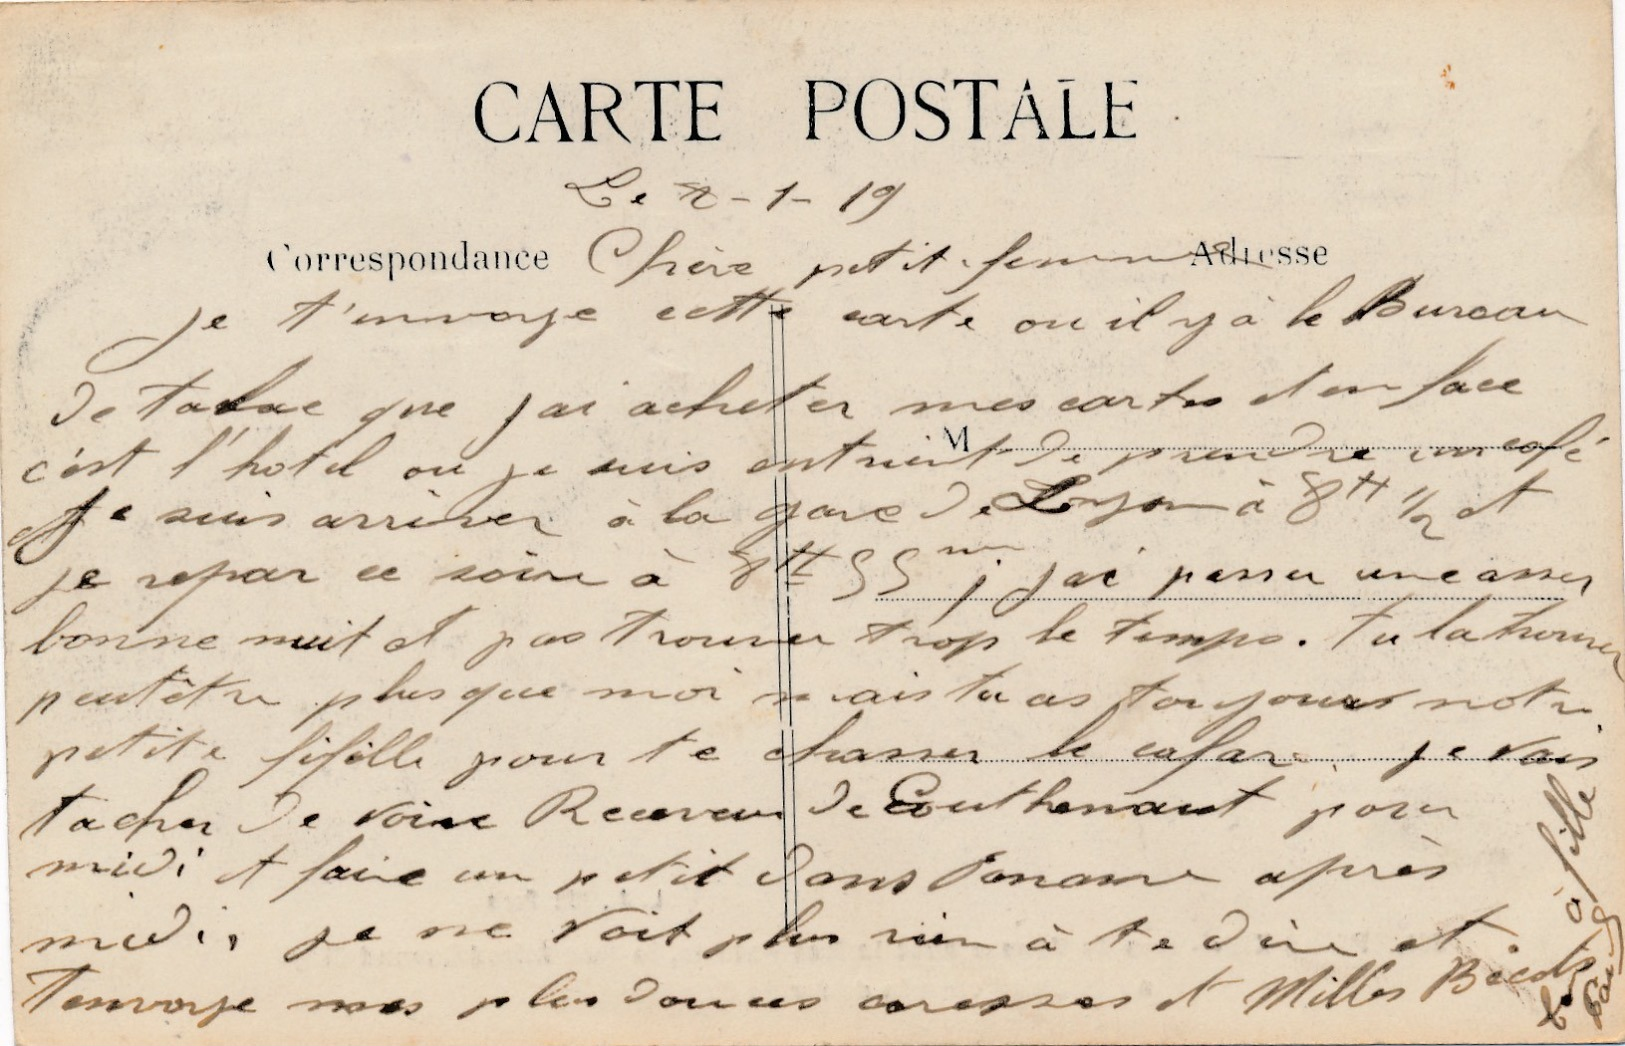 CARTE POSTALE
Le 2-1-19
Correspondance Chère petit femme Adresse
je t'envoye cette carte ou il y à le Bureau
de tabac que j'ai acheter mes cartes et en face
M
c'est l'hotel ou je suis entrient de prendre un café
je suis arriver à la gare de Lyon à 8H 1/2 et
je repar ce soire à 8H 55 m j'ai passer une asser
bonne nuit et pas trouver trop le temps. tu la trouver
peutêtre plus que moi mais tu as toujours notre
petite fifille pour te chasser le cafar. je vais
tacher de voire Receveur de Couthenaut pour
midi et faire un petit dans après
midi, je ne voit plus rien à te dire et
t'envoye mes plus douces caresses et Milles Bécots
à fille